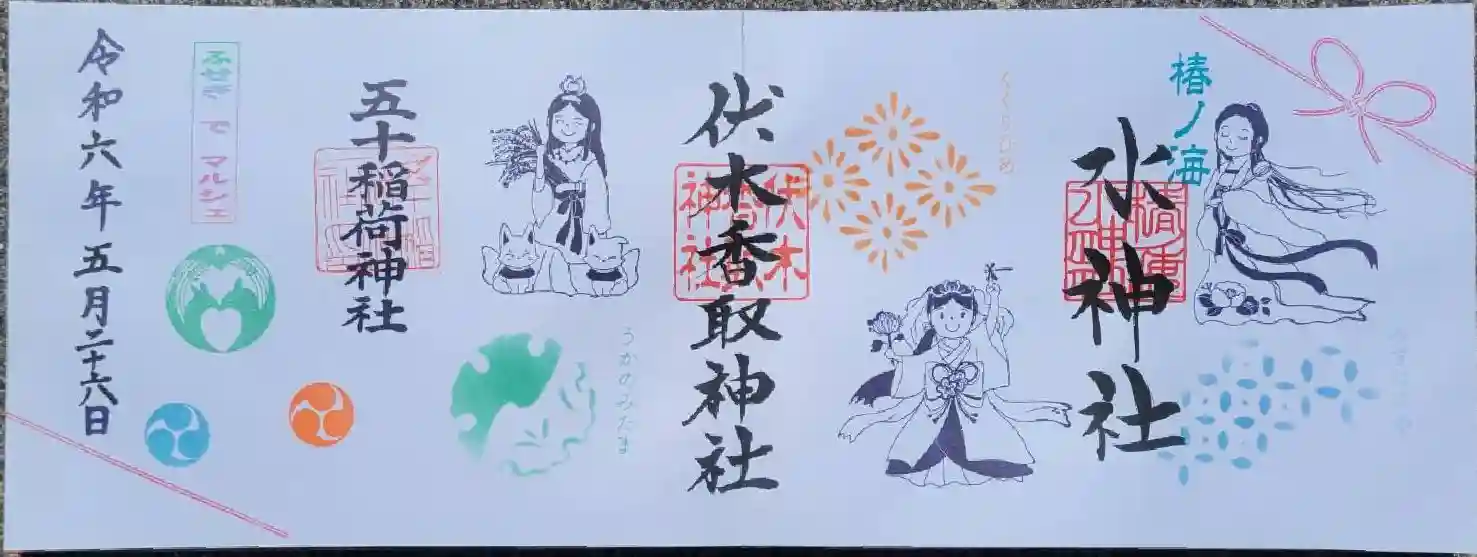 椿ノ海
水神社
くくりひめ
伏木香取神社
伏木
香取
神社
うかのみたま
五十稲荷神社
ふせぎ で マルシェ
令和六年五月二十六日